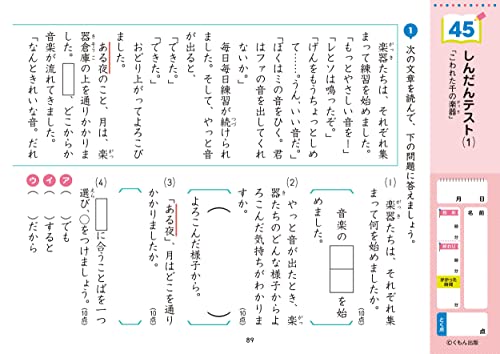 45
しんだんテスト(1)
「こわれた千の楽器」
月 日
名前
始め
時 分
終わり
時 分
かかった時間
分
とく点
点
©くもん出版
1 次の文章を読んで、下の問題に答えましょう。
楽器たちは、それぞれ集
まって練習を始めました。
「もっとやさしい音を!」
「レとソは鳴ったぞ。」
「げんをもうちょっとしめ
て……。うん、いい音だ。」
「ぼくはミの音をひく。君
はファの音を出してくれ
ないか。」
毎日毎日練習が続けられ
ました。そして、やっと音
が出ると、
「できた。」
「できた。」
おどり上がってよろこび
ました。
ある夜のこと、月は、楽
器倉庫の上を通りかかりま
した。□、どこからか
音楽が流れてきました。
「なんときれいな音。だれ
(1) 楽器たちは、それぞれ集
まって何を始めましたか。
(10点)
音楽の□□を始
めました。
(2) やっと音が出たとき、楽
器たちのどんな様子からよ
ろこんだ気持ちがわかりま
すか。
(10点)
( )
よろこんだ様子から。
(3) 「ある夜」、月はどこを通り
かかりましたか。
(10点)
(4) □に合うことばを一つ
選び、○をつけましょう。
(10点)
ア( )でも
イ( )すると
ウ( )だから
89